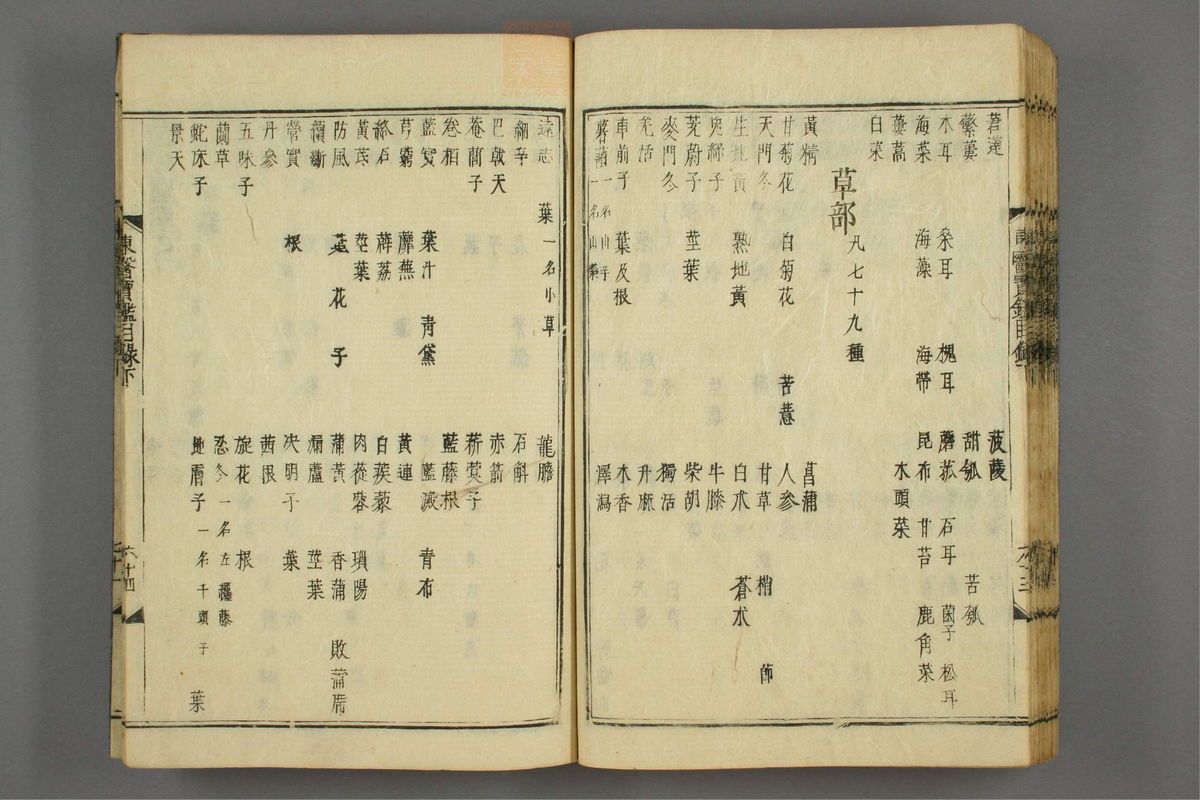 莙薘 菠薐
蘩蔞 甜瓠 苦瓠
木耳 桑耳 槐耳 蘑菰 石耳 菌子 松耳
海菜 海藻 海帶 昆布 甘苔 鹿角菜
蔞蒿 木頭菜
白菜
草部 凡七十九種
黃精 菖蒲
甘菊花 白菊花 苦薏 人參
天門冬 甘草 梢 節
生地黃 熟地黃 白朮 蒼朮
兔絲子 牛膝
茺蔚子 莖葉 柴胡
麥門冬 獨活
羌活 升麻
車前子 葉及根 木香
薯蕷一名山芋一名山藥 澤瀉
遠志 葉一名小草 龍膽
細辛 石斛
巴戟天 赤箭
菴䕡子 菥蓂子
卷栢 藍藤根
藍實 葉汁 青黛 藍澱 青布
芎藭 蘼蕪 黃連
絡石 薜荔 白蒺藜
黃芪 莖葉 肉蓯蓉 瑣陽
防風 葉 花 子 蒲黃 香蒲 敗蒲席
續斷 漏蘆 莖葉
營實 根 决明子 葉
丹參 茜根
五味子 旋花 根
蘭草 忍冬一名左纏藤
蛇床子 地膚子一名千頭子 葉
景天
東醫寶鑑目錄下
六十四